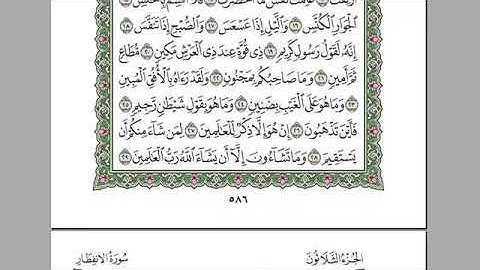 ٱلۡجَوَارِ ٱلۡكُنَّسِ ١٦ وَٱلَّيۡلِ إِذَا عَسۡعَسَ ١٧ وَٱلصُّبۡحِ إِذَا تَنَفَّسَ ١٨
إِنَّهُۥ لَقَوۡلُ رَسُولٖ كَرِيمٖ ١٩ ذِي قُوَّةٍ عِندَ ذِي ٱلۡعَرۡشِ مَكِينٖ ٢٠ مُّطَاعٖ
ثَمَّ أَمِينٖ ٢١ وَمَا صَاحِبُكُم بِمَجۡنُونٖ ٢٢ وَلَقَدۡ رَءَاهُ بِٱلۡأُفُقِ ٱلۡمُبِينِ
٢٣ وَمَا هُوَ عَلَى ٱلۡغَيۡبِ بِضَنِينٖ ٢٤ وَمَا هُوَ بِقَوۡلِ شَيۡطَٰنٖ رَّجِيمٖ ٢٥
فَأَيۡنَ تَذۡهَبُونَ ٢٦ إِنۡ هُوَ إِلَّا ذِكۡرٞ لِّلۡعَٰلَمِينَ ٢٧ لِمَن شَآءَ مِنكُمۡ أَن
يَسۡتَقِيمَ ٢٨ وَمَا تَشَآءُونَ إِلَّآ أَن يَشَآءَ ٱللَّهُ رَبُّ ٱلۡعَٰلَمِينَ ٢٩
٥٨٦
الجزء الثلاثون
سورة الانفطار